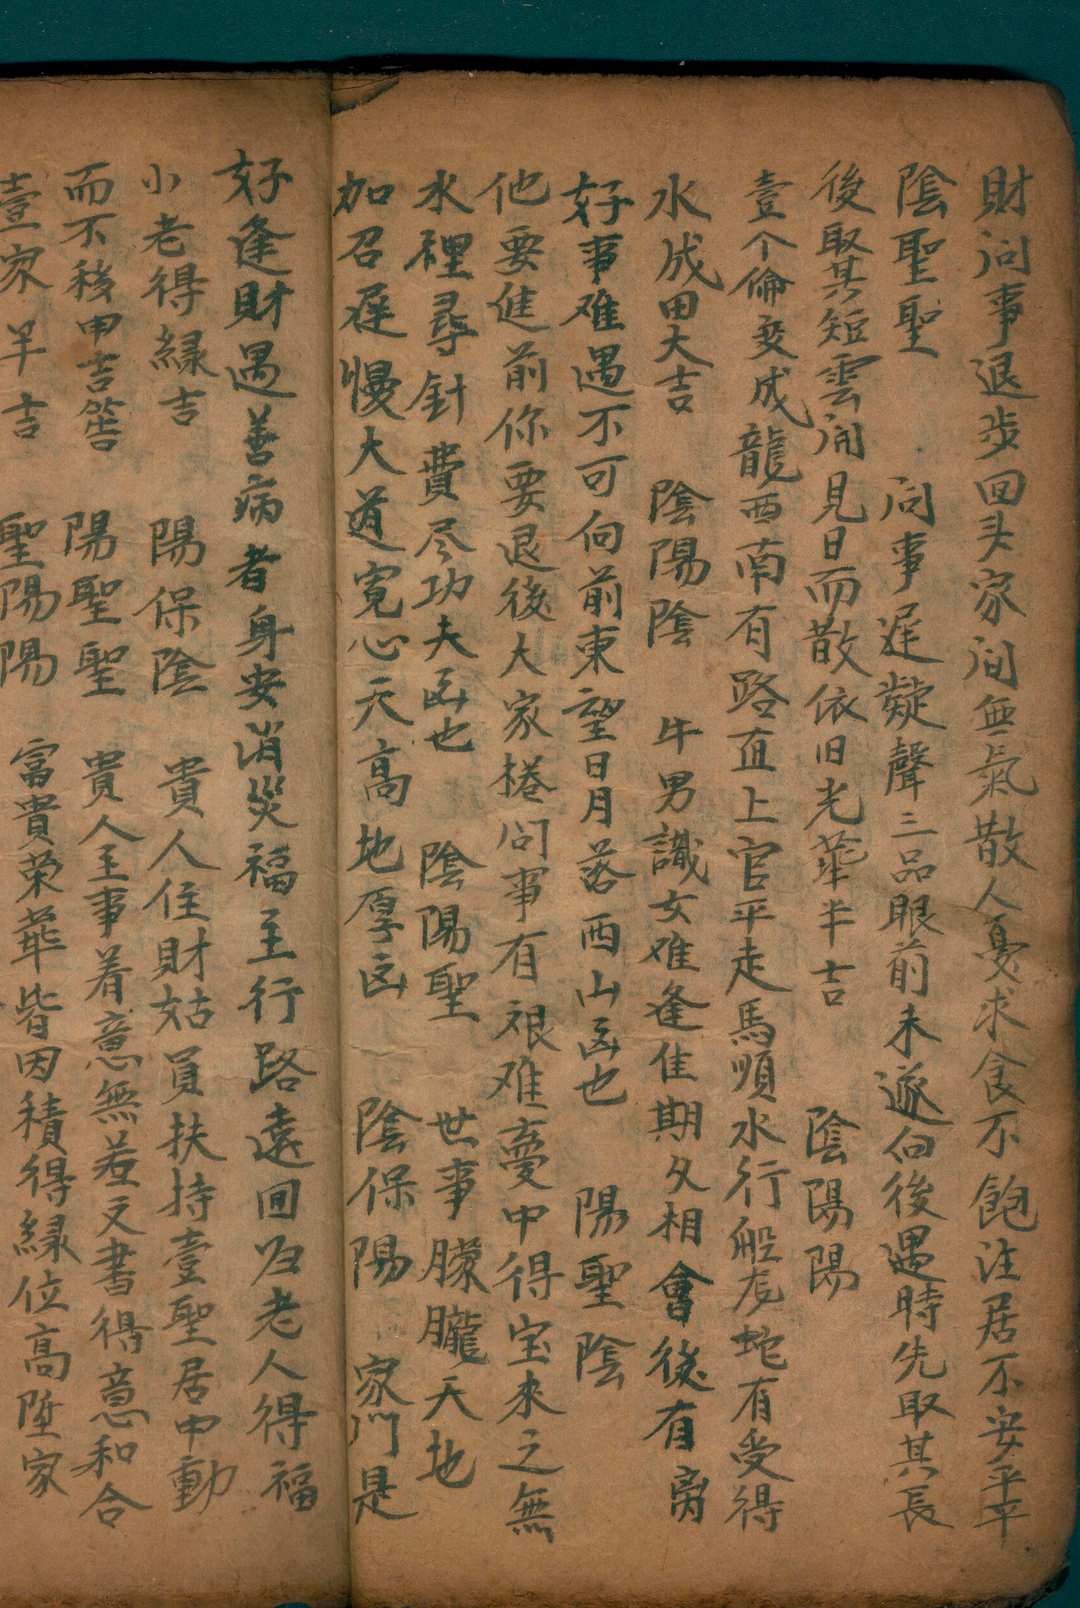 財问事退步回头家间無氣散人憂求食不飽注居不安平平
陰聖聖 问事遅凝聲三品眼前未遂向後遇時先取其長
後取其短雲開見日而散依旧光華半吉 陰陽陽
壹个偷変成龍西南有路直上官平走馬順水行船虎蛇有受得
水成田大吉 陰陽陰 牛男識女难逢佳期久相會後有离
好事难遇不可向前東望日月落西山凶也 陽聖陰
他要進前你要退後大家捲问事有艰难夢中得宝来之無
水裡尋針費尽功夫凶也 陰陽聖 世事朦朧天地
加召遅慢大道寛心天高地厚凶 陰保陽 家门是
好逢財遇善病者身安消災福至行路遠回归老人得福
小老得縁吉 陽保陰 貴人住財姑員扶持壹聖居中動
而不移甲吉筶 陽聖聖 貴人主事着意無差文書得意和合
壹家羊吉 聖陽陽 富貴荣華皆因積得縁位高陞家